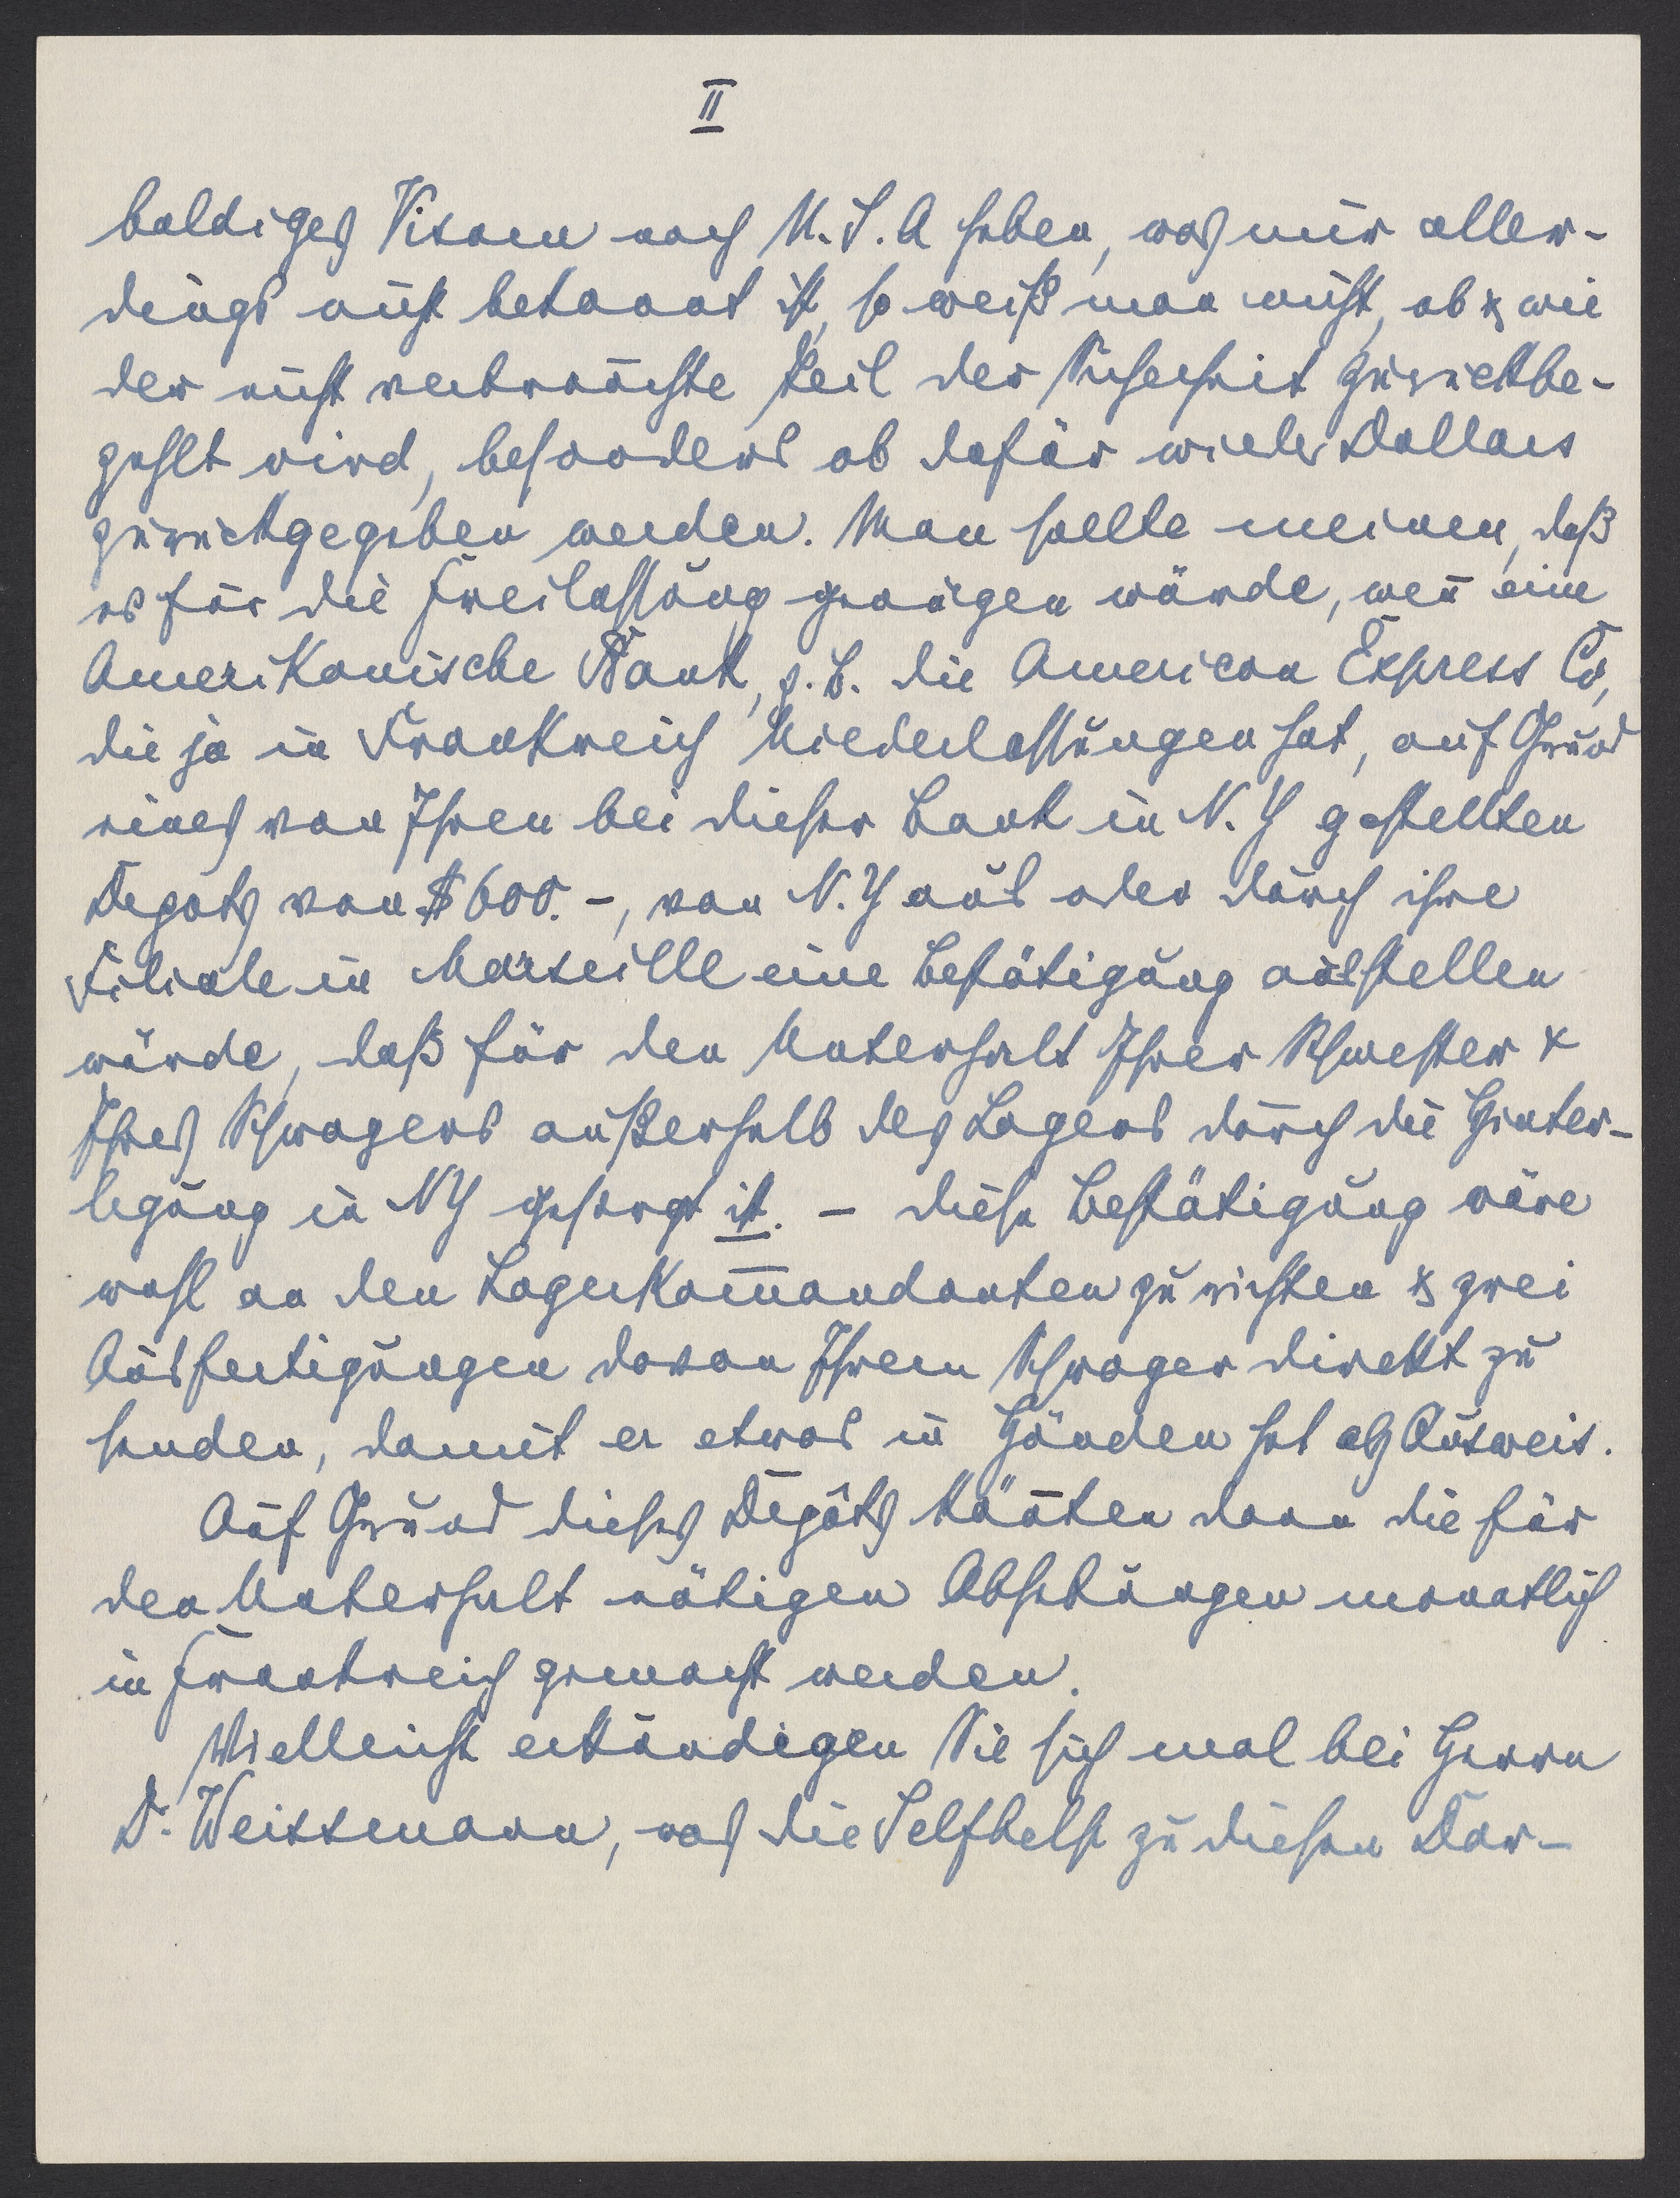 II
baldiges Visum nach U.S.A haben, was mir aller-
dings nicht bekannt ist, so weiß man nicht, ob & wie
der nicht verbrauchte Teil der Sicherheit zurückbe-
zahlt wird, besonders ob dafür wieder Dollars
zurückgegeben werden. Man sollte meinen, daß
es für die Freilassung genügen würde, wen̄ eine
Amerikanische Bank, z.B. die American Express Co,
die ja in Frankreich Niederlassungen hat, auf Grund
eines von Ihnen bei dieser Bank in N.Y gestellten
Depots von $600.-, von N.Y aus oder durch ihre
Filiale in Marseille eine Bestätigung ausstellen
würde, daß für den Unterhalt Ihrer Schwester &
Ihres Schwagers außerhalb des Lagers durch die Hinter-
legung in NY gesorgt ist. – Diese Bestätigung wäre
wohl an den Lagerkom̄andanten zu richten & zwei
Ausfertigungen davon Ihrem Schwager direkt zu
senden, damit er etwas in Händen hat als Ausweis.
Auf Grund dieses Depôts kön̄ten dann die für
den Unterhalt nötigen Abhebungen monatlich
in Frankreich gemacht werden.
Vielleicht erkundigen Sie sich mal bei Herrn
Dr. Weissmann, was die Selfhelp zu diesem Vor-